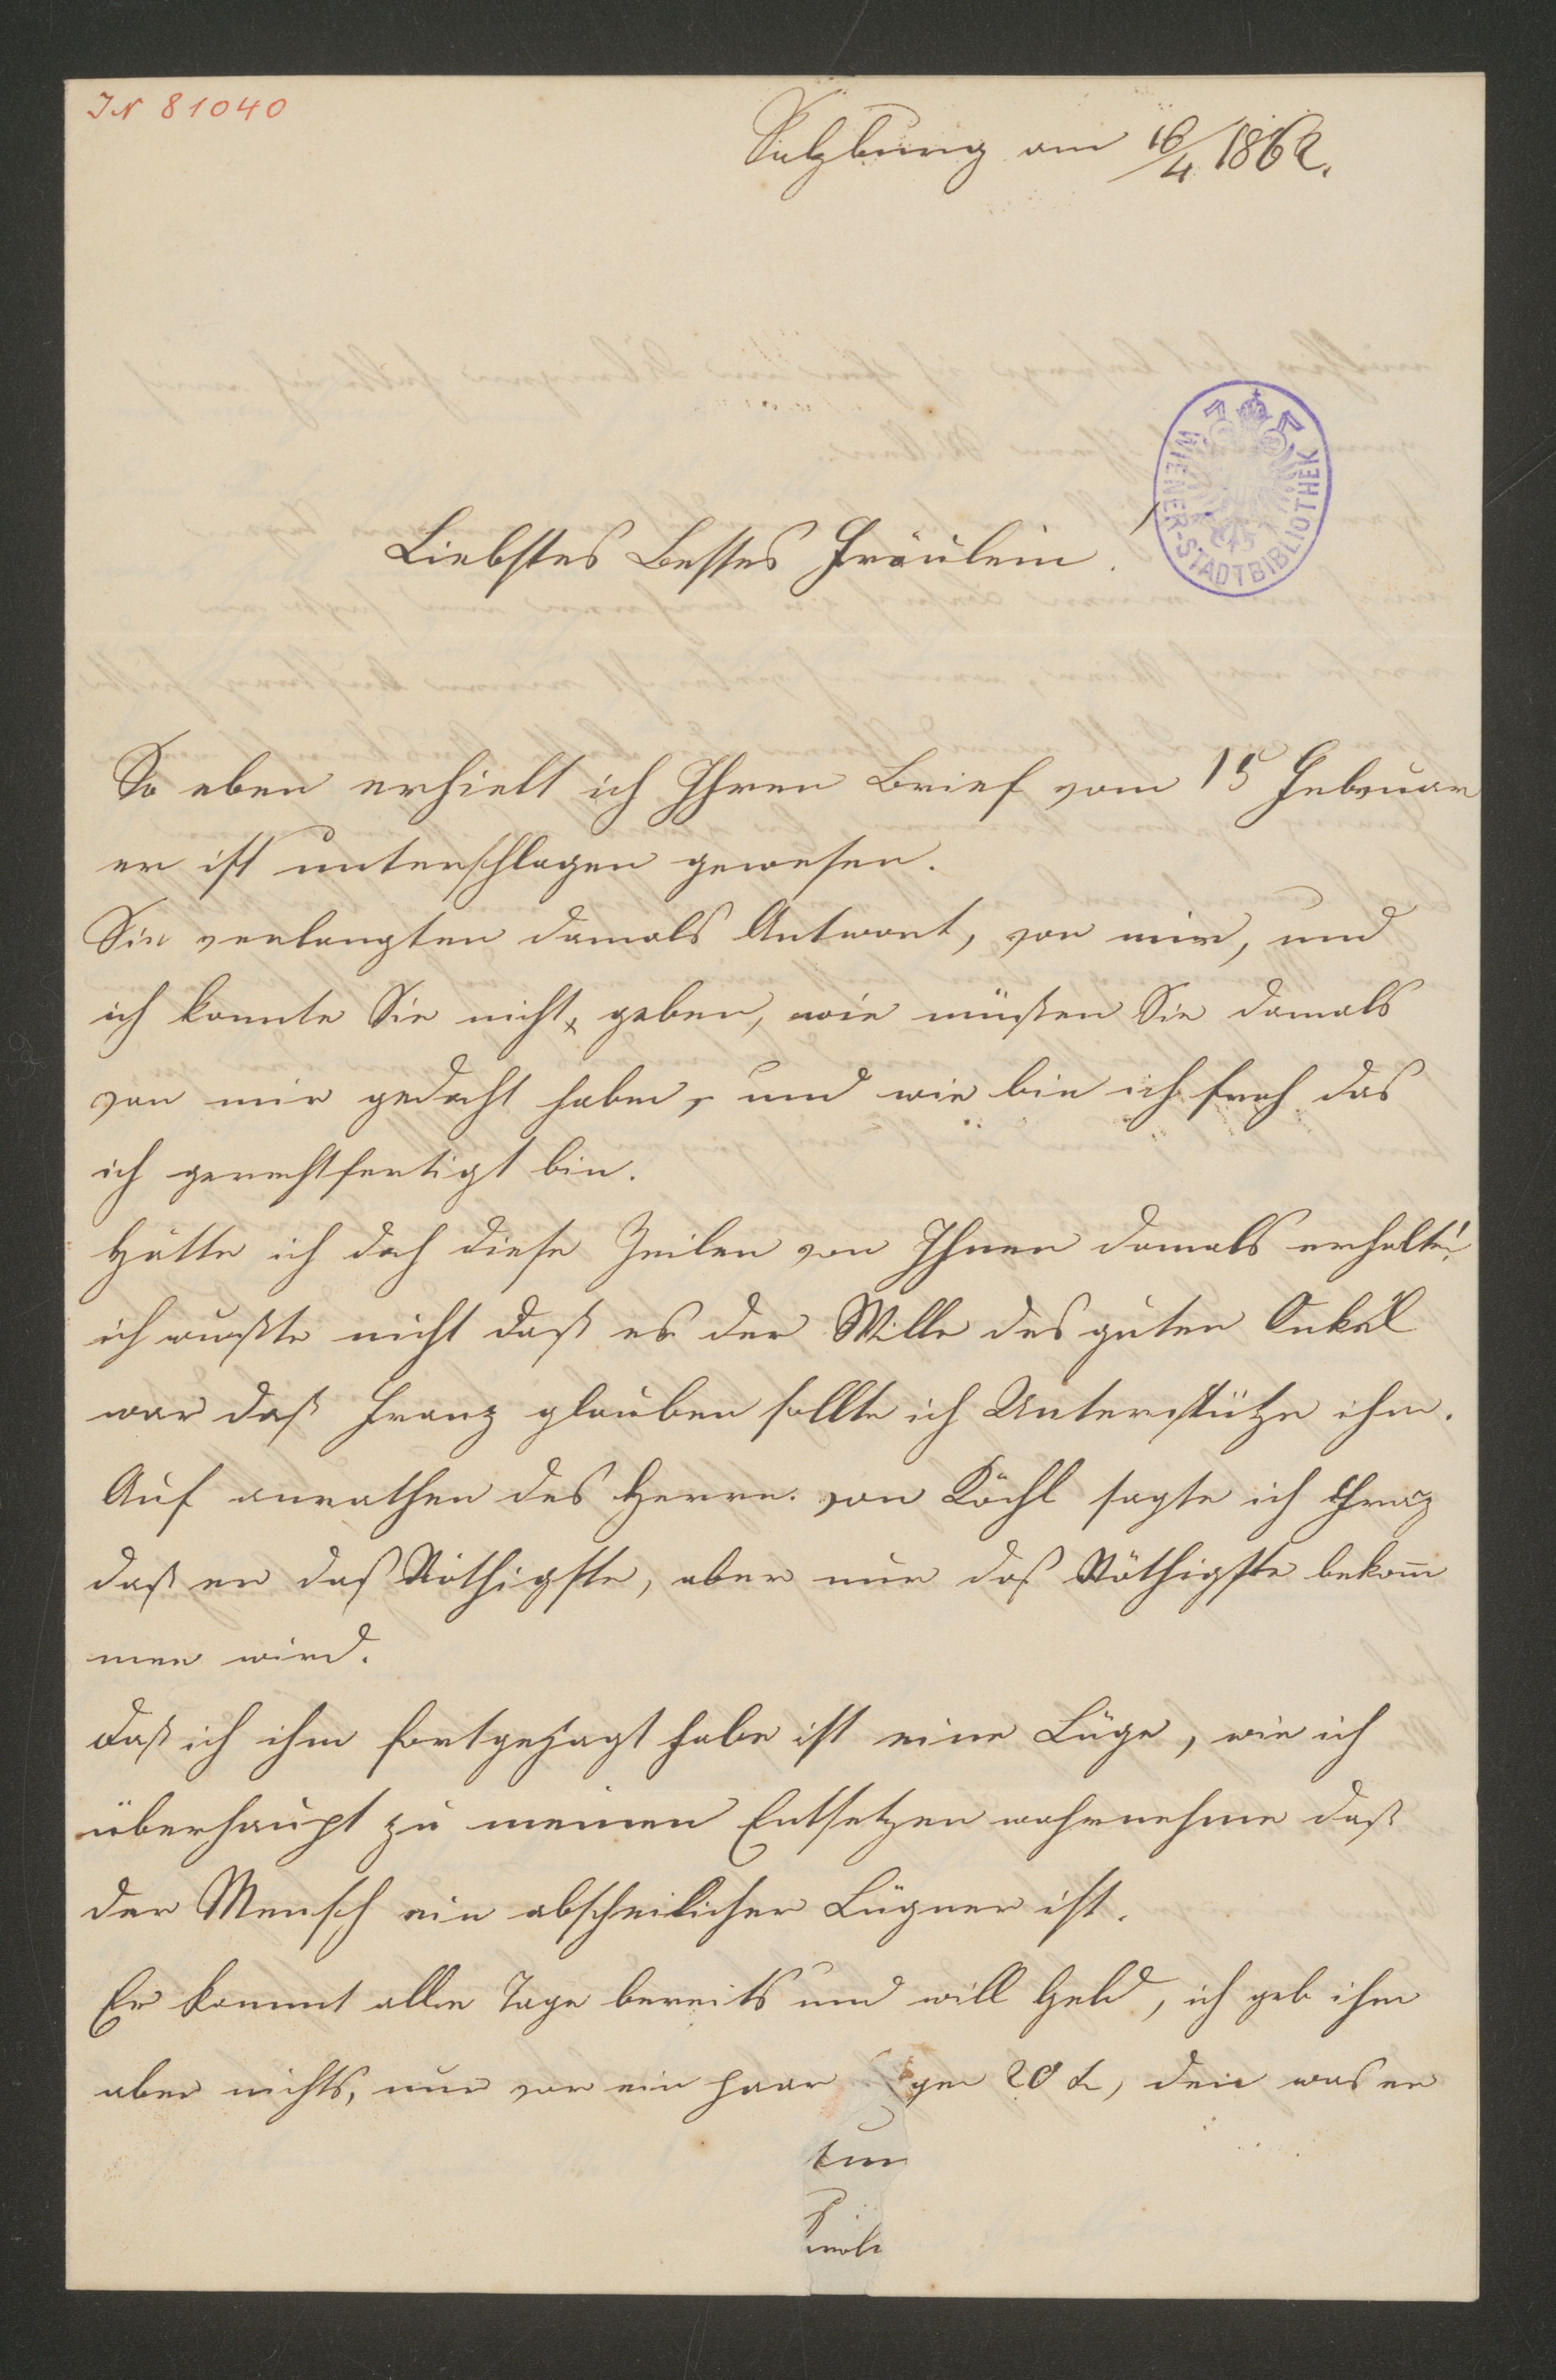 IN 81040
Salzburg am 16/4 1862.
WIENER-STADTBIBLIOTHEK
Liebstes Bestes Fräulein!
So eben erhielt ich Ihren Brief vom 15 Februar
er ist unterschlagen gewesen.
Sie verlangten damals Antwort, von mir, und
ich konnte Sie nicht geben, wie müßen Sie damals
von mir gedacht haben, und wie bin ich froh das
ich gerechtfertigt bin.
Hätte ich doch diese Zeilen von Ihnen damals erhalten!
ich wußte nicht daß es der Wille des guten Onkel
war daß Franz glauben sollte ich Unterstütze ihm.
Auf anrathen des Herrn von Köchl sagte ich Franz
daß er das Nöthigste, aber nur das Nöthigste bekom̄
men wird.
daß ich ihm fortgejagt habe ist eine Lüge, wie ich
überhaupt zu meinen Entsetzen wahrnehme daß
der Mensch ein abscheilicher Lügner ist.
Er kommt alle Tage bereits und will Geld, ich geb ihm
aber nichts, nur vor ein paar gen 20 x, den was er